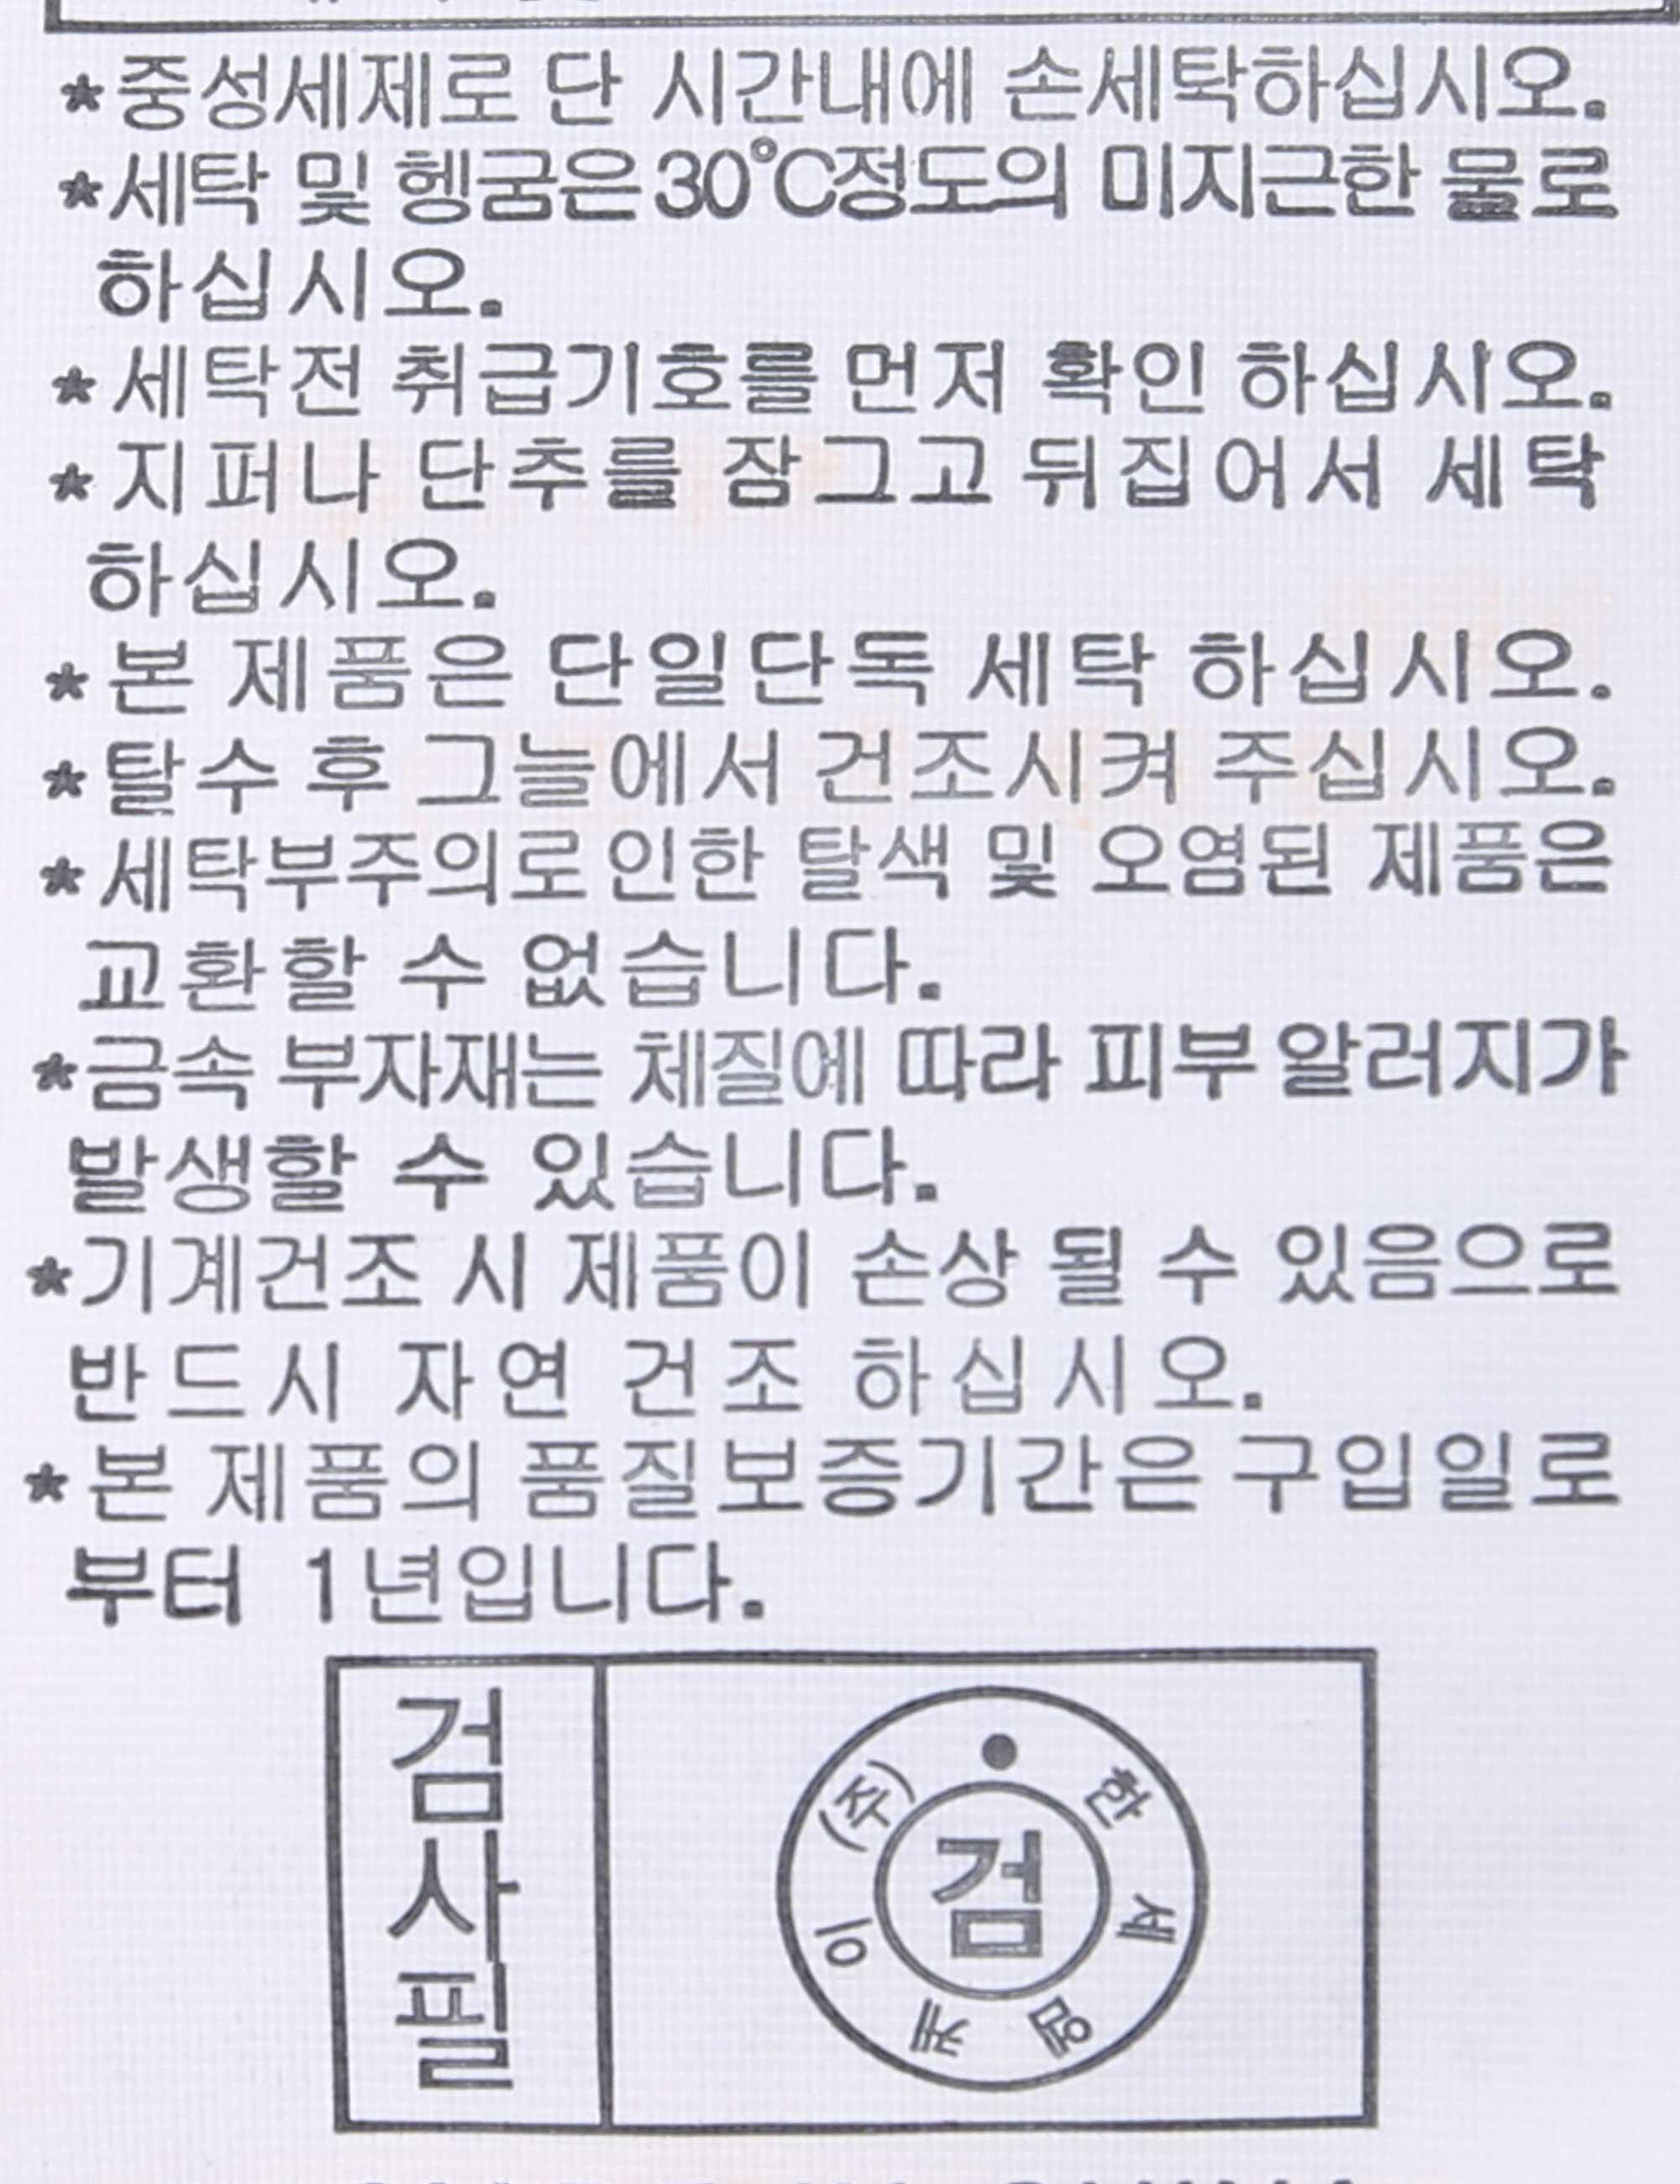 *중성세제로 단 시간내에 손세탁하십시오.
*세탁 및 헹굼은 30°C정도의 미지근한 물로
하십시오.
*세탁전 취급기호를 먼저 확인 하십시오.
*지퍼나 단추를 잠그고 뒤집어서 세탁
하십시오.
*본 제품은 단일단독 세탁 하십시오.
*탈수 후 그늘에서 건조시켜 주십시오.
*세탁부주의로인한 탈색 및 오염된 제품은
교환할 수 없습니다.
*금속 부자재는 체질에 따라 피부 알러지가
발생할 수 있습니다.
*기계건조 시 제품이 손상 될 수 있음으로
반드시 자연 건조 하십시오.
*본 제품의 품질보증기간은 구입일로
부터 1년입니다.
검사필
(주)한세엠케이
검